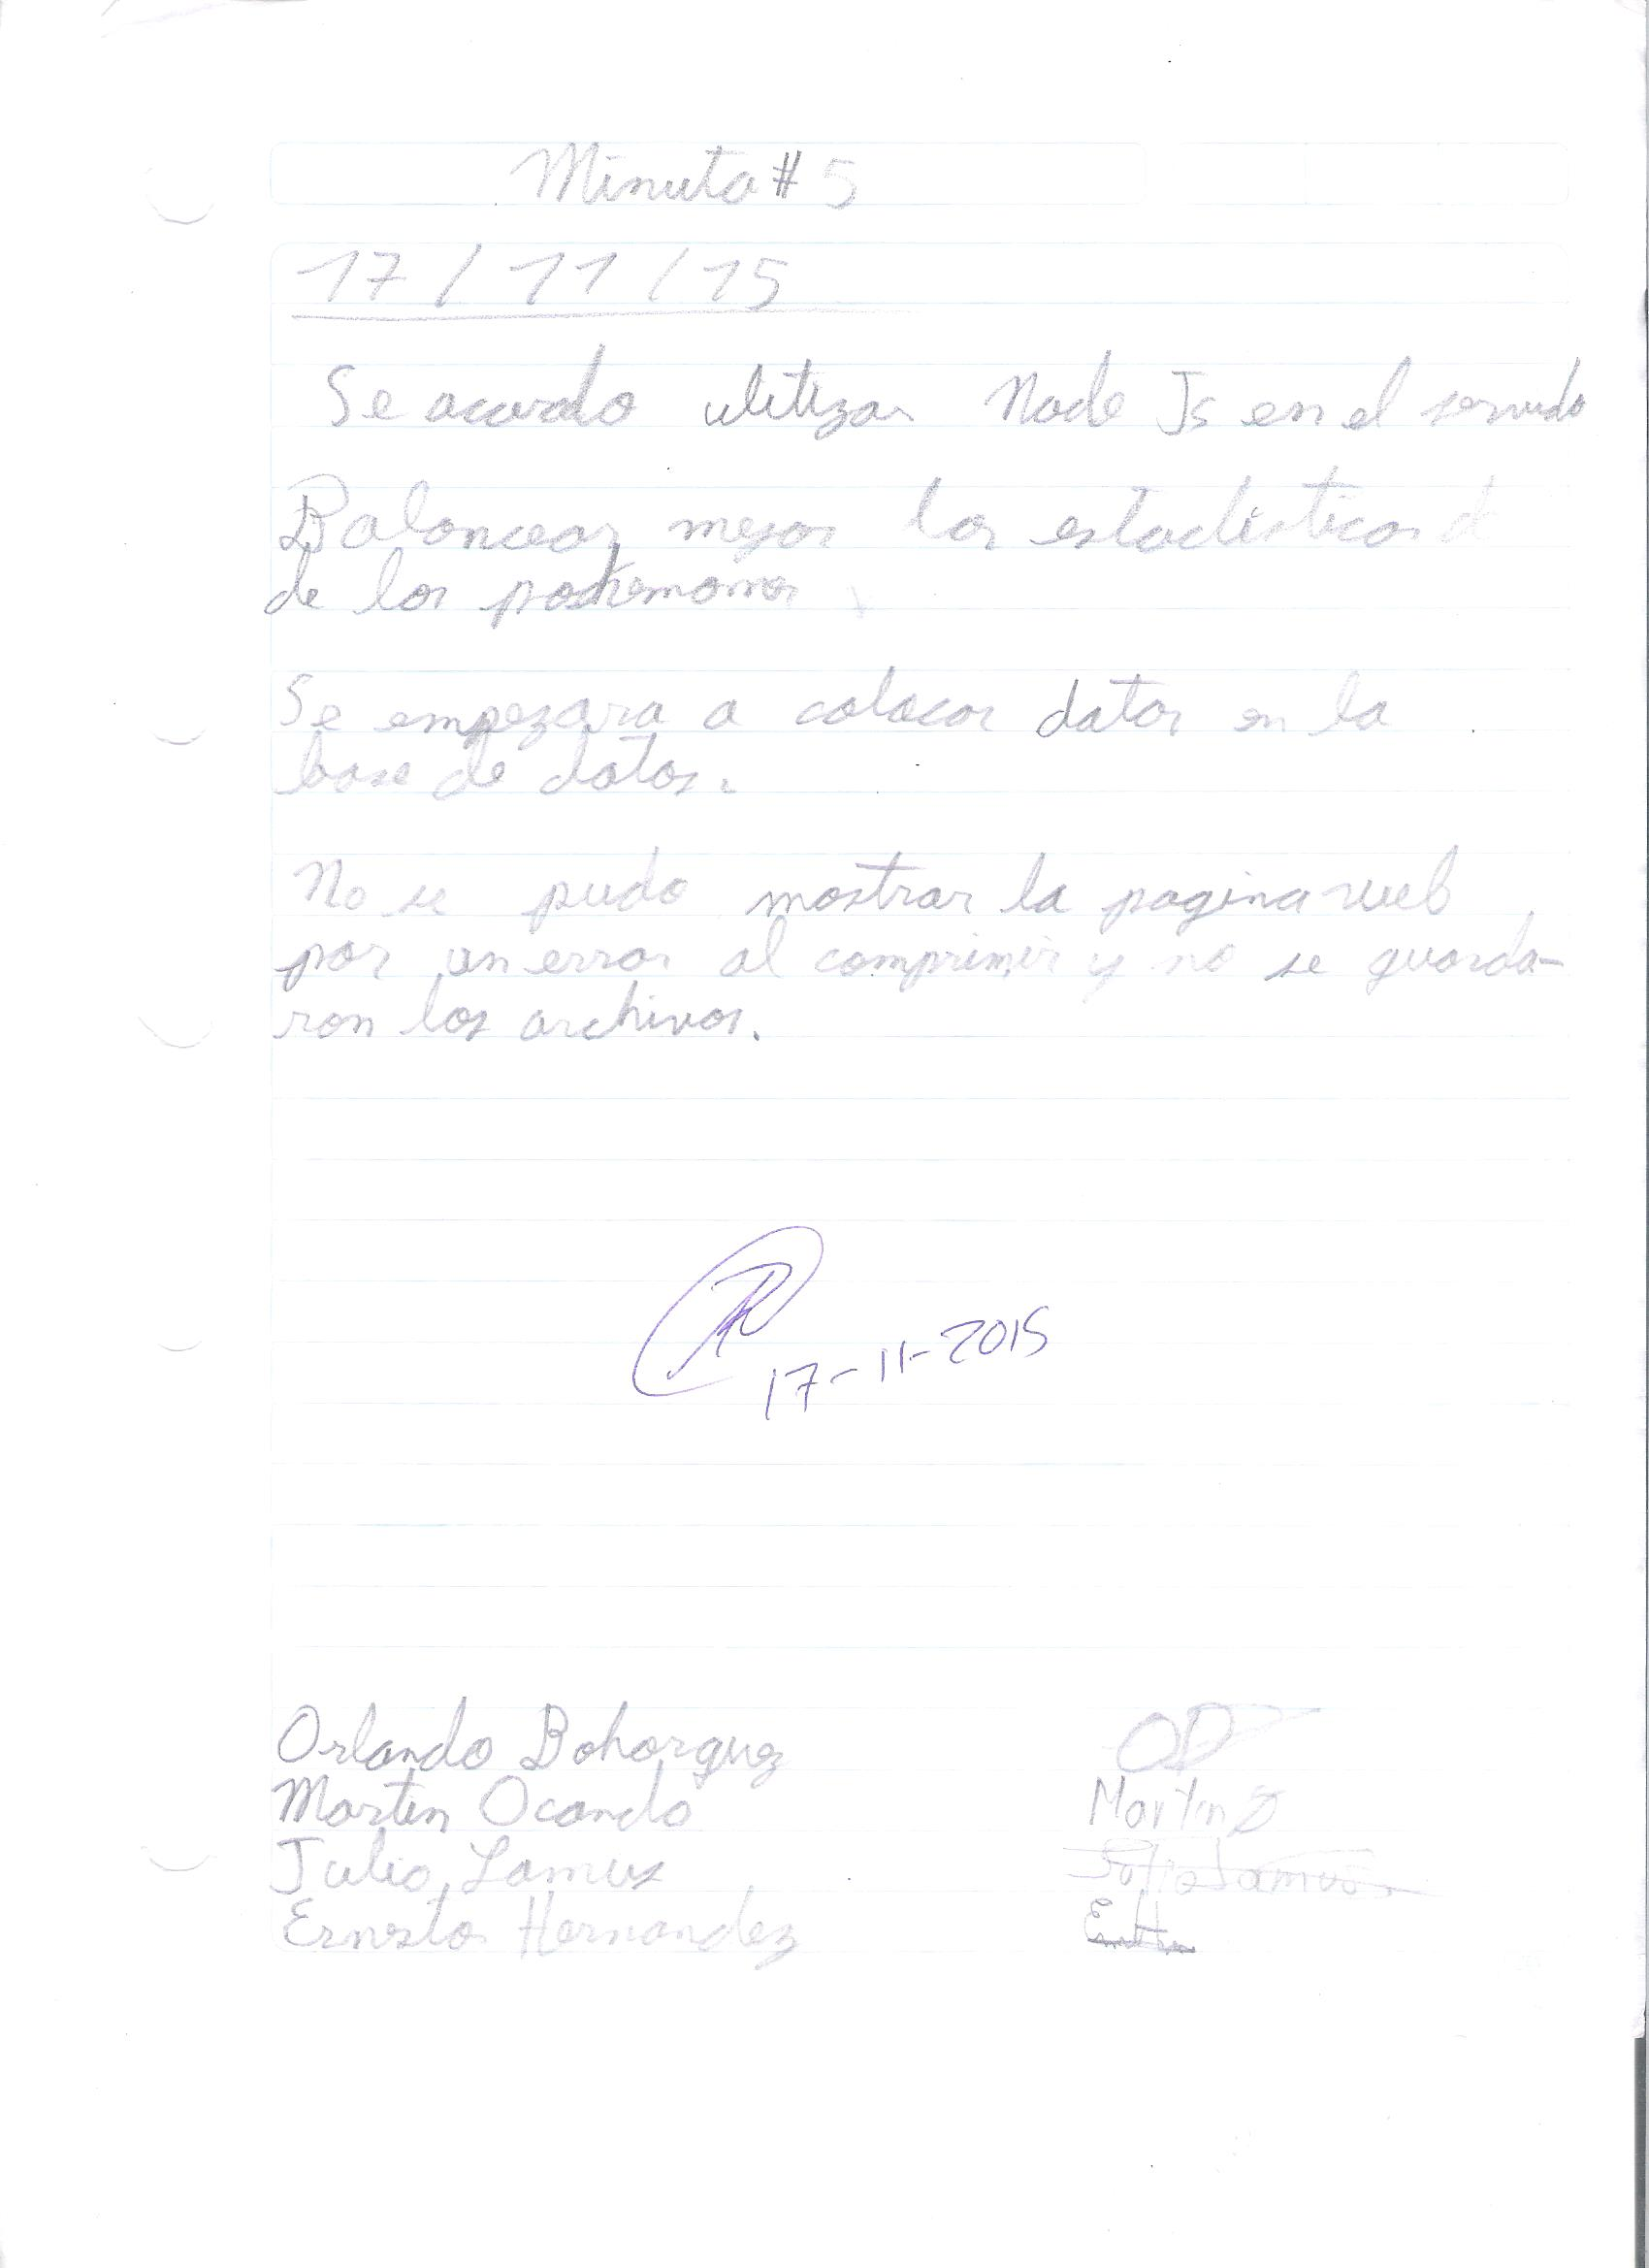 Minuta # 5
17 / 11 / 15
Se acordo utilizar Node Js en el
Balancear mejor las estadisticas d
de los
Se empezara a colocar datos en la
base de datos.
No se pudo mostrar la pagina web
por un error al comprimir y no se guarda-
ron los archivos.
17-11-2015
Orlando Bohorquez
Martin Ocando Martin
Julio Lamus Julio Lamus
Ernesto Hernandez